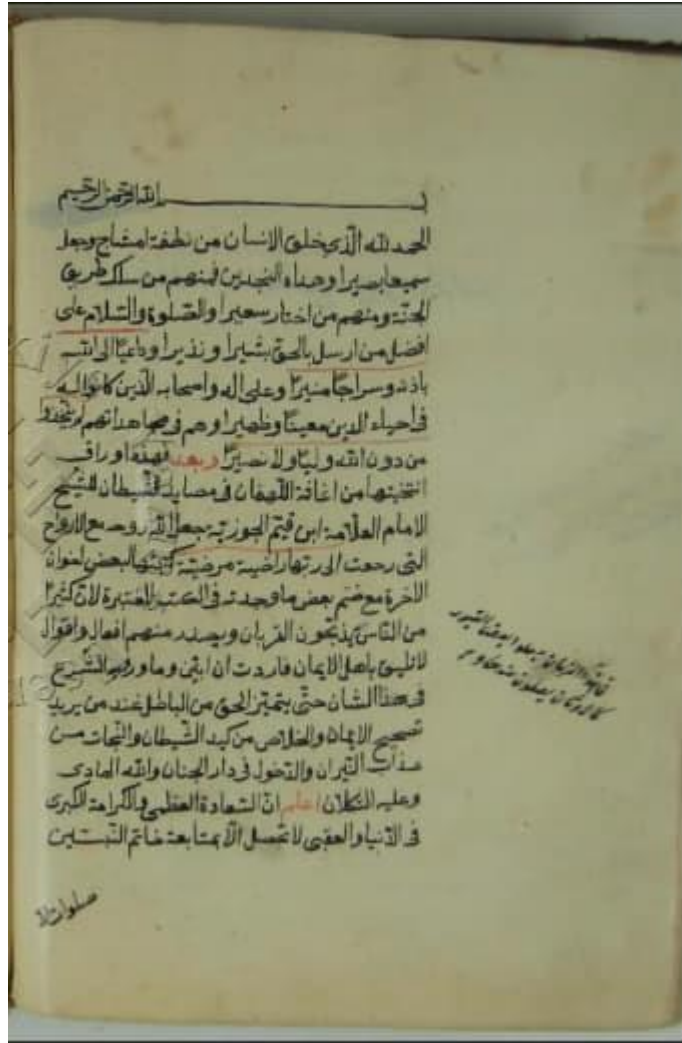 بسم الله الرحمن الرحيم
الحمد لله الذي خلق الانسان من نطفة امشاج وجعله
سميعا بصيرا وهداه النجدين فمنهم من سلك طريق
الجنة ومنهم من اختار سعيرا والصلوة والسلام على
افضل من ارسل بالحق بشيرا ونذيرا وداعيا الى الله
باذنه وسراجا منيرا وعلى اله واصحابه الذين كانوا له
في احياء الدين معينا وظهيرا وهم في مجاهداتهم لم يتخذوا
من دون الله وليا ولا نصيرا وبعد فهذه اوراق
انتخبتها من اغاثة اللهفان في مصايد الشيطان للشيخ
الامام العلامة ابن قيم الجوزية جعل الله روحه مع الارواح
التي رجعت الى ربها راضية مرضية كتبتها لبعض اخوان
الاخرة مع ضم بعض ما وجدته في الكتب المعتبرة لان كثيرا
من الناس يذبحون القربان ويصدر منهم افعال واقوال
لا تليق باهل الايمان فاردت ان ابين وما ورد به الشرع
في هذا الشان حتى يتميز الحق من الباطل عند من يريد
تصحيح الايمان والخلاص من كيد الشيطان والنجات من
عذاب النيران والدخول في دار الجنان والله الهادى
وعليه التكلان اعلم ان السعادة العظمى والكرامة الكبرى
في الدنيا والعقبى لا تحصل الا بمتابعة خاتم النبيين
صلوات الله